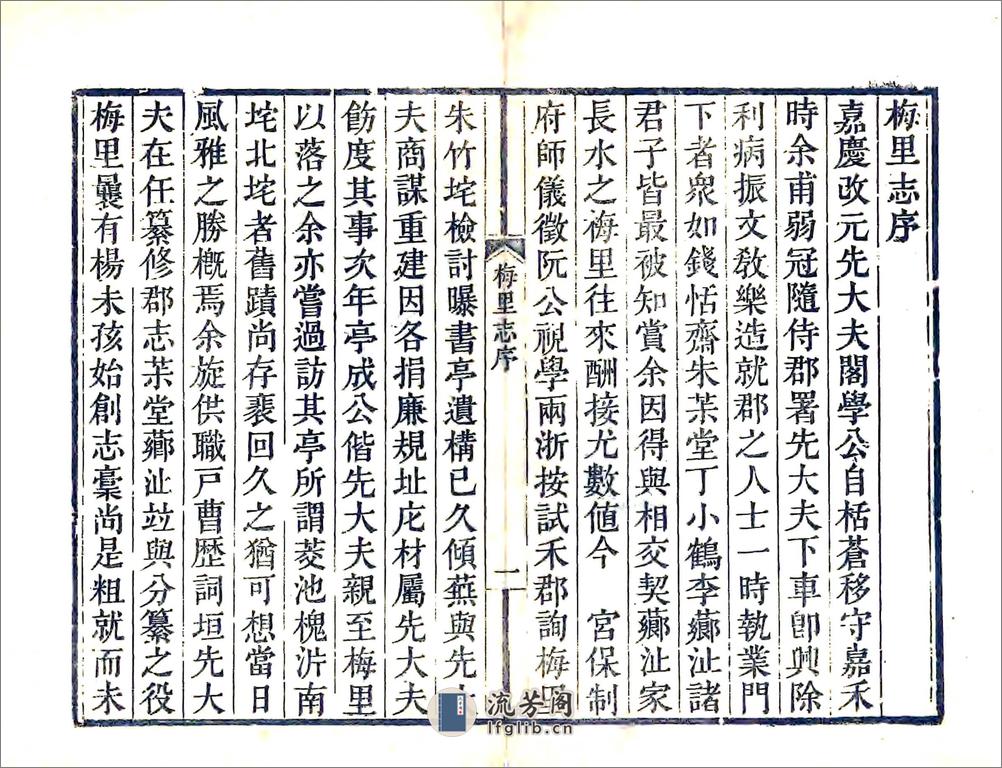 梅里志序
嘉慶改元先大夫閣學公自栝蒼移守嘉禾
時余甫弱冠隨侍郡署先大夫下車卽興除
利病振文敎樂造就郡之人士一時執業門
下者衆如錢恬齋朱茮堂丁小鶴李薌沚諸
君子皆最被知賞余因得與相交契薌沚家
長水之梅里往來酬接尤數値今　宮保制
府師儀徵阮公視學兩浙按試禾郡詢梅里
梅里志序
一
朱竹垞檢討曝書亭遺構已久傾蕪與先大
夫商謀重建因各捐廉規址庀材屬先大夫
飭度其事次年亭成公偕先大夫親至梅里
以落之余亦嘗過訪其亭所謂菱池槐沜南
垞北垞者舊蹟尚存裴回久之猶可想當日
風雅之勝槪焉余旋供職戸曹歴詞垣先大
夫在任纂修郡志茮堂薌沚竝與分纂之役
梅里曩有楊未孩始創志稾尚是粗就而未
流芳阁
lfglib.cn